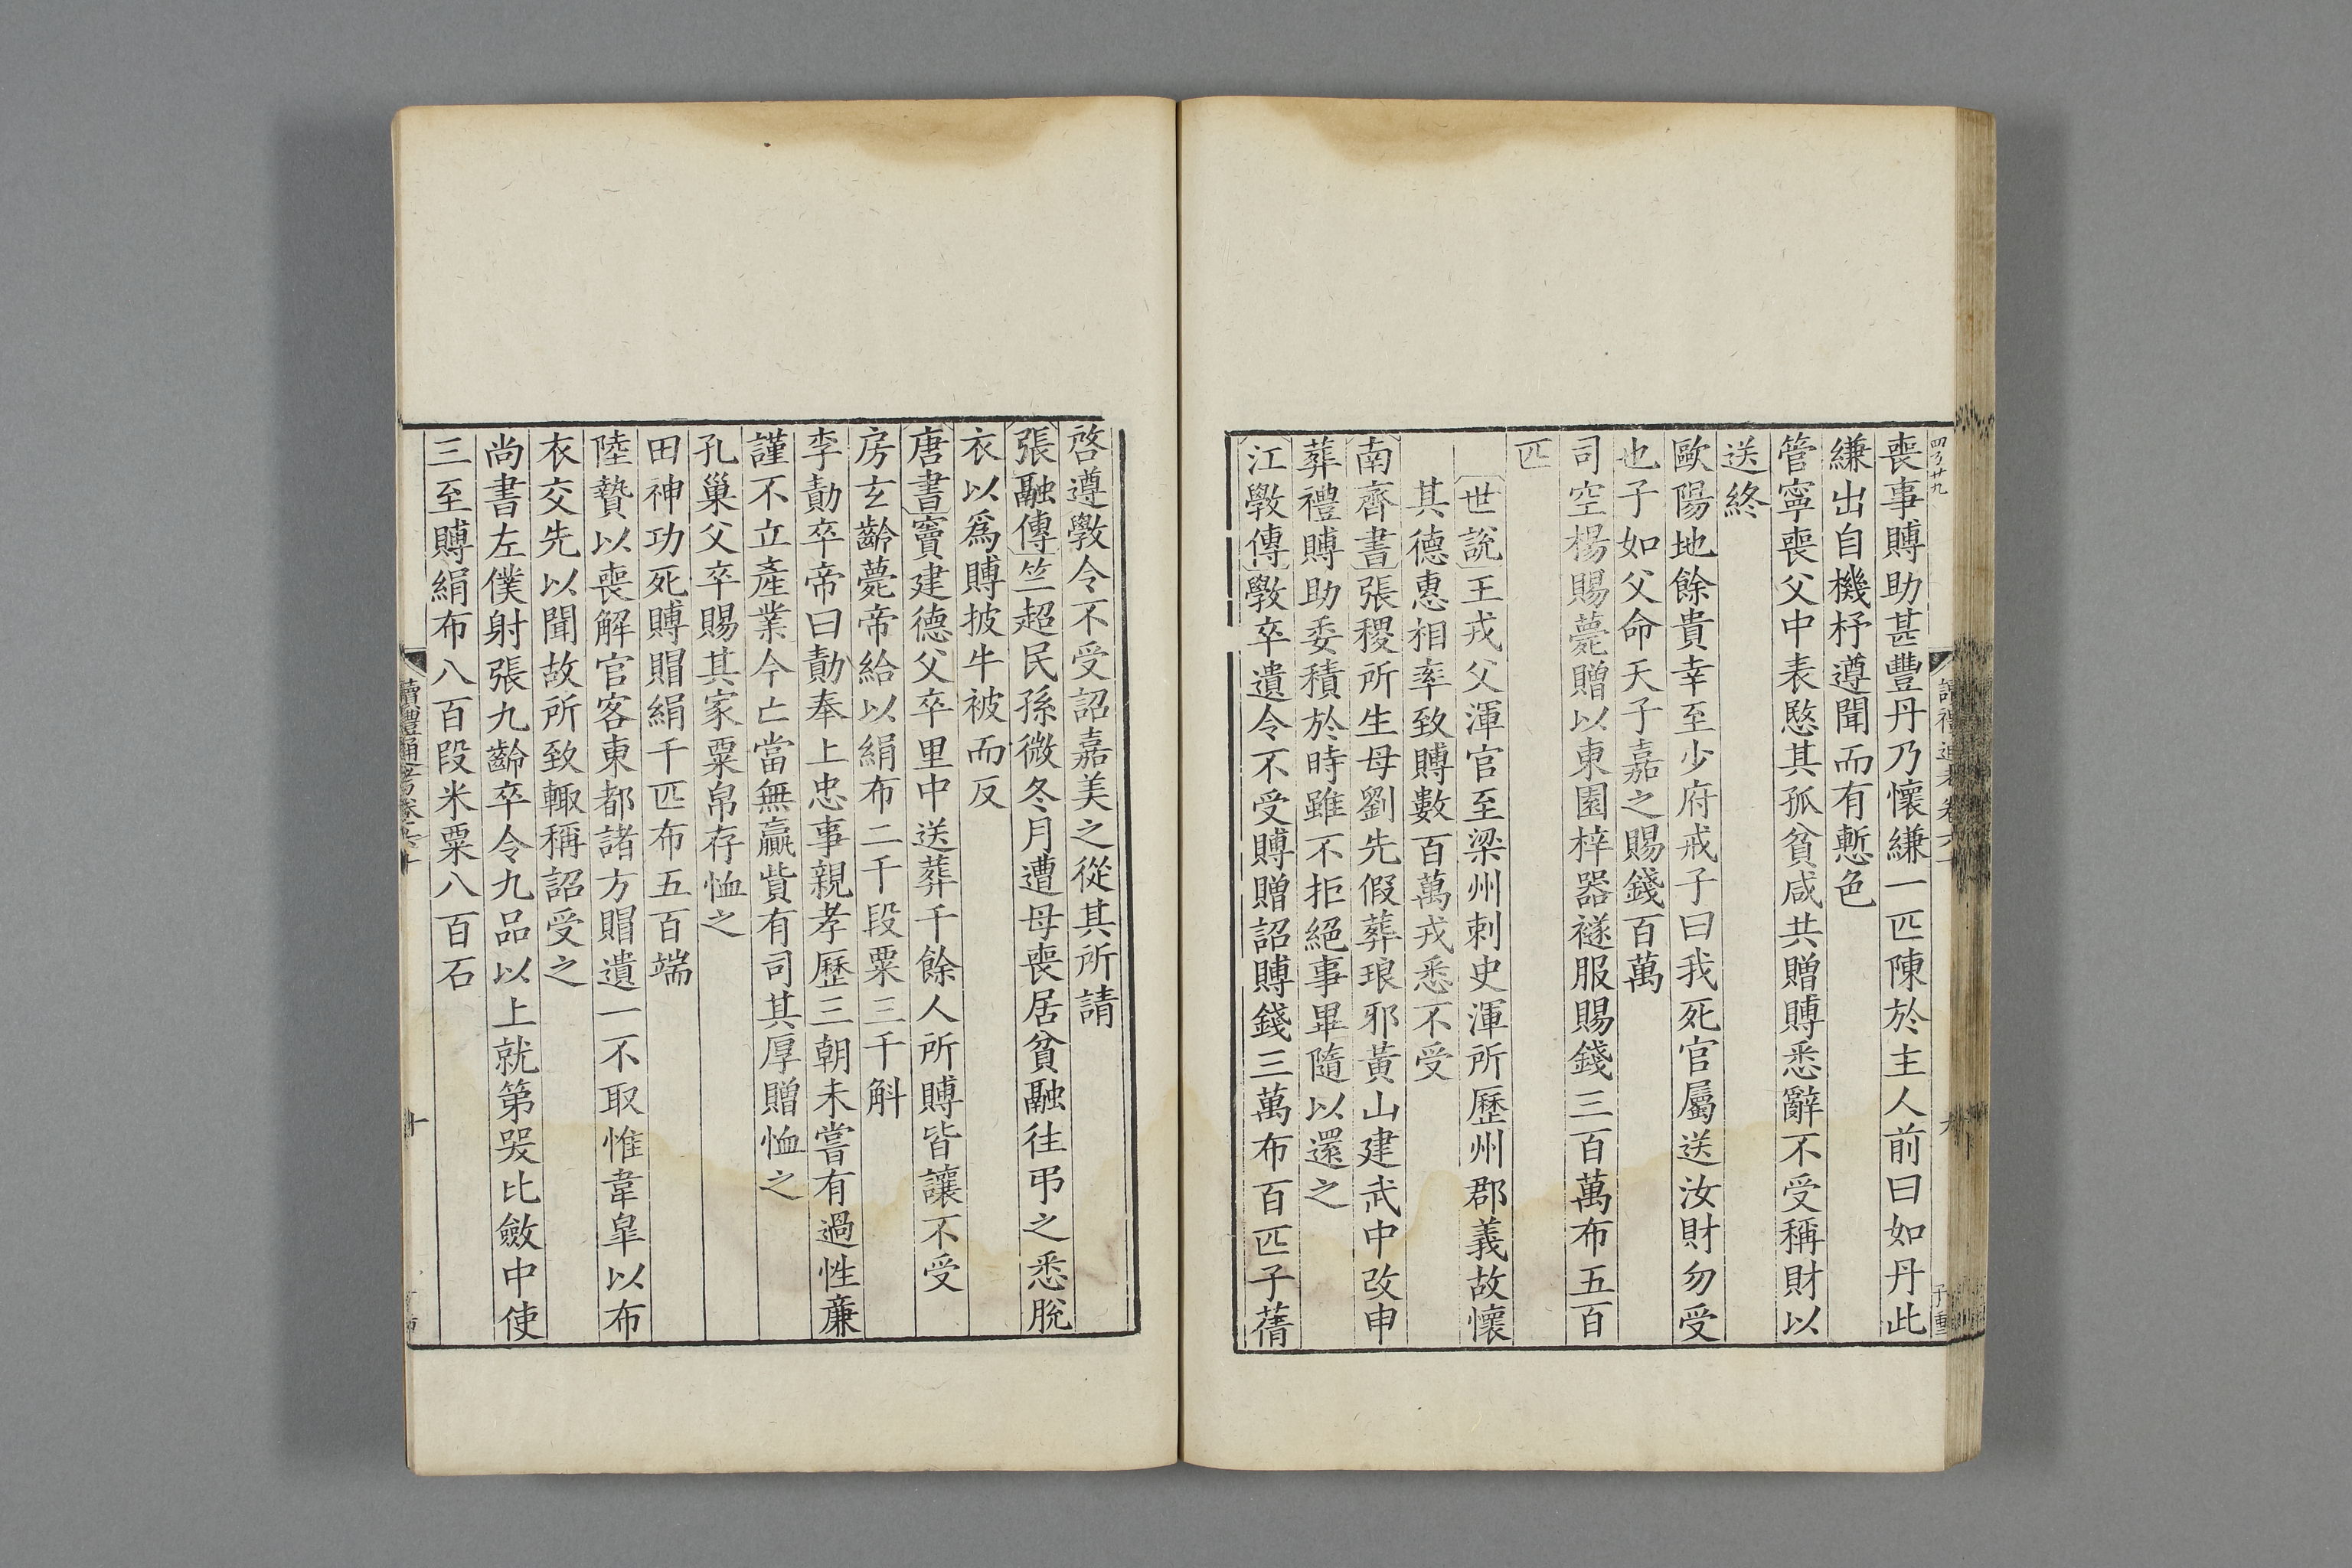 喪事賻助甚豐丹乃懷縑一匹陳於主人前曰如丹此
縑出自機杼遵聞而有慙色
管寧喪父中表愍其孤貧咸共贈賻悉辭不受稱財以
送終
歐陽地餘貴幸至少府戒子曰我死官屬送汝財勿受
也子如父命天子嘉之賜錢百萬
司空楊賜薨贈以東園梓器襚服賜錢三百萬布五百
匹
世說王戎父渾官至梁州刺史渾所歷州郡義故懷
其德惠相率致賻數百萬戎悉不受
南齊書張稷所生母劉先假葬琅邪黃山建武中改申
葬禮賻助委積於時雖不拒絕事畢隨以還之
江斆傳斆卒遺令不受賻贈詔賻錢三萬布百匹子蒨
啓遵斆令不受詔嘉美之從其所請
張融傳竺超民孫微冬月遭母喪居貧融往弔之悉脫
衣以爲賻披牛被而反
唐書竇建德父卒里中送葬千餘人所賻皆讓不受
房玄齡薨帝給以絹布二千段粟三千斛
李勣卒帝曰勣奉上忠事親孝歷三朝未嘗有過性廉
謹不立產業今亡當無贏貲有司其厚贈恤之
孔巢父卒賜其家粟帛存恤之
田神功死賻賵絹千匹布五百端
陸贄以喪解官客東都諸方賵遺一不取惟韋臯以布
衣交先以聞故所致輙稱詔受之
尚書左僕射張九齡卒令九品以上就第哭比斂中使
三至賻絹布八百段米粟八百石
讀禮通考卷六十
十